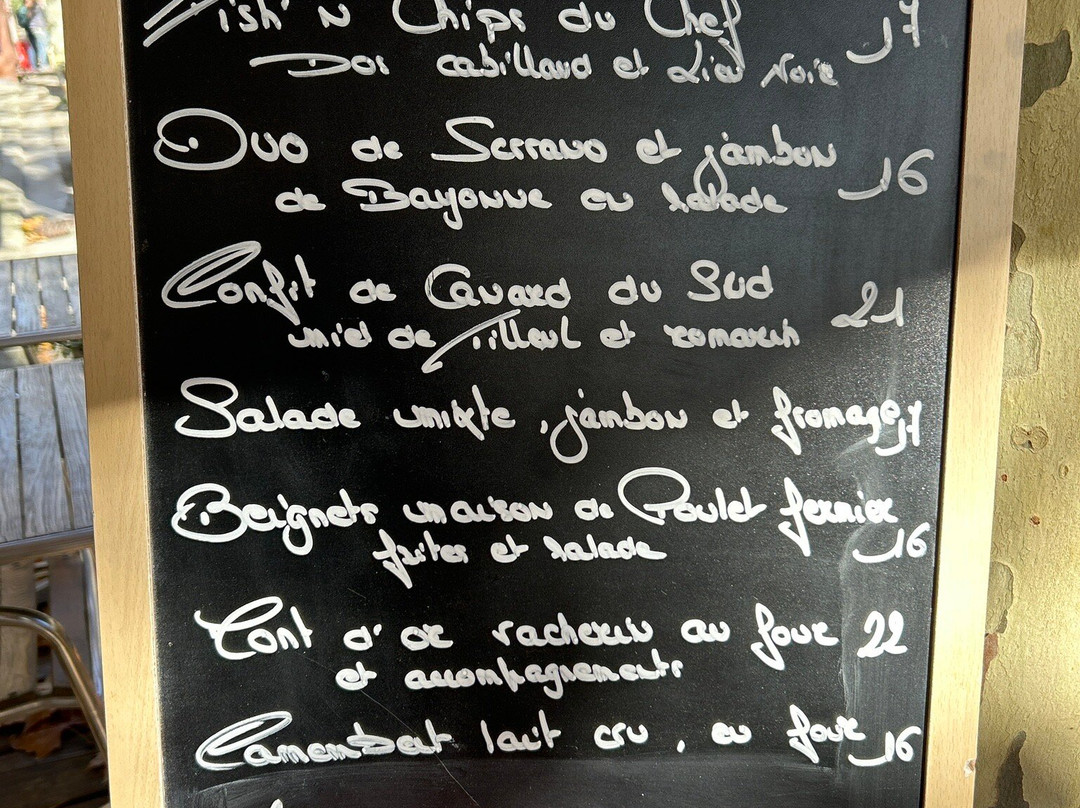 Fish'N Chips du Chef 17
Dos cabillaud et Lieu Noir
Duo de Serrano et jambon
de Bayonne en salade 16
Confit de Canard du Sud
miel de Tilleul et romarin 21
Salade mixte, jambon et fromage 17
Beignets maison de Poulet fermier
frites et salade 16
Mont d'or vacherin au four 22
et accompagnements
Camembert lait cru, au four 16